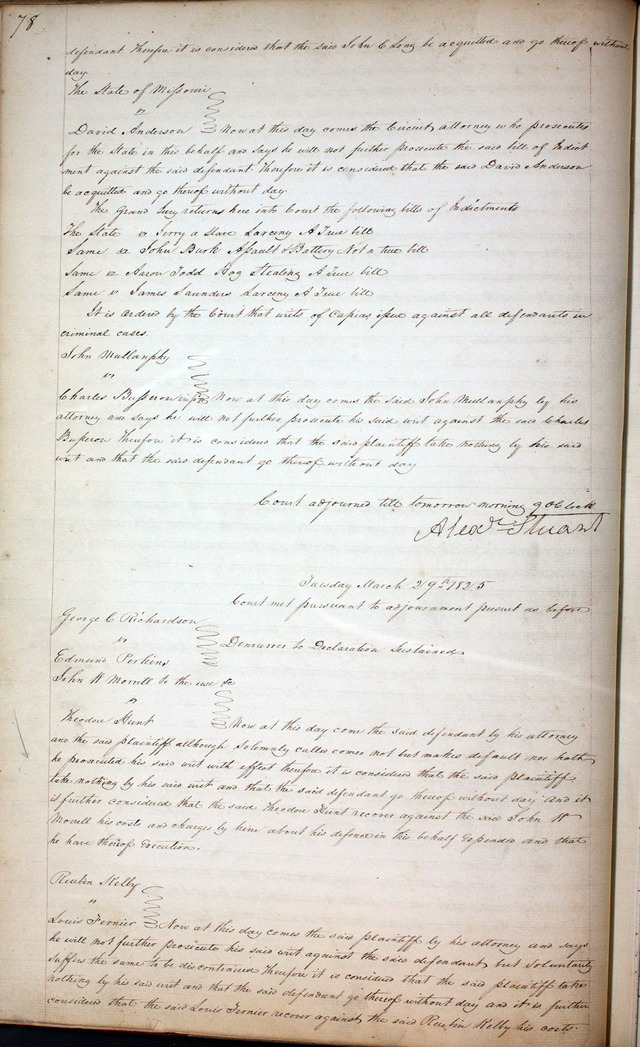 78
defendant Therefore it is considered that the said John C Long be acquitted and go thereof without
day.
The State of Missouri
vs
David Anderson Now at this day comes the Circuit attorney who prosecutes
for the State in this behalf and says he will not further prosecute the said bill of Indict
ment against the said defendant. Therefore it is considered that the said David Anderson
be acquitted and go thereof without day.
The Grand Jury returns here into Court the following bills of Indictments
The State vs Jerry a slave Larceny A True bill
Same vs John Burk Assault & Battery Not a true bill
Same vs Aaron Todd Hog Stealing A True bill
Same vs James Saunders Larceny A True bill
It is ordered by the Court that writs of Capias issue against all defendants in
criminal cases.
John Mullanphy
vs
Charles Busseron Now at this day comes the said John Mullanphy by his
attorney and says he will not further prosecute his said writ against the said Charles
Busseron Therefore it is considered that the said plaintiff take nothing by his said
writ and that the said defendant go thereof without day
Court adjourned till tomorrow morning 9 oClock
Alexr Stuart
Tuesday March 29th 1825
Court met pursuant to adjournment present as before
George C Richardson
vs
Demurrer to Declaration Sustained.
Edmund Perkins
John W Morrell to the use &c
vs
Theodore Hunt Now at this day come the said defendant by his attorney
and the said plaintiff although solemnly called comes not but makes default nor hath
he prosecuted his said writ with effect therefore it is considered that the said plaintiff
take nothing by his said writ and that the said defendant go thereof without day and it
is further considered that the said Theodore Hunt recover against the said John W
Morrell his costs and charges by him about his defence in this behalf Expended and that
he have thereof Execution.
Reubin Kelby
vs
Louis Fernier Now at this day comes the said plaintiff by his attorney and says
he will not further prosecute his said writ against the said defendant but voluntarily
suffers the same to be discontinued Therefore it is considered that the said plaintiff take
nothing by his said writ and that the said defendant go thereof without day and it is further
considered that the said Louis Fernier recover against the said Reubin Kelby his costs